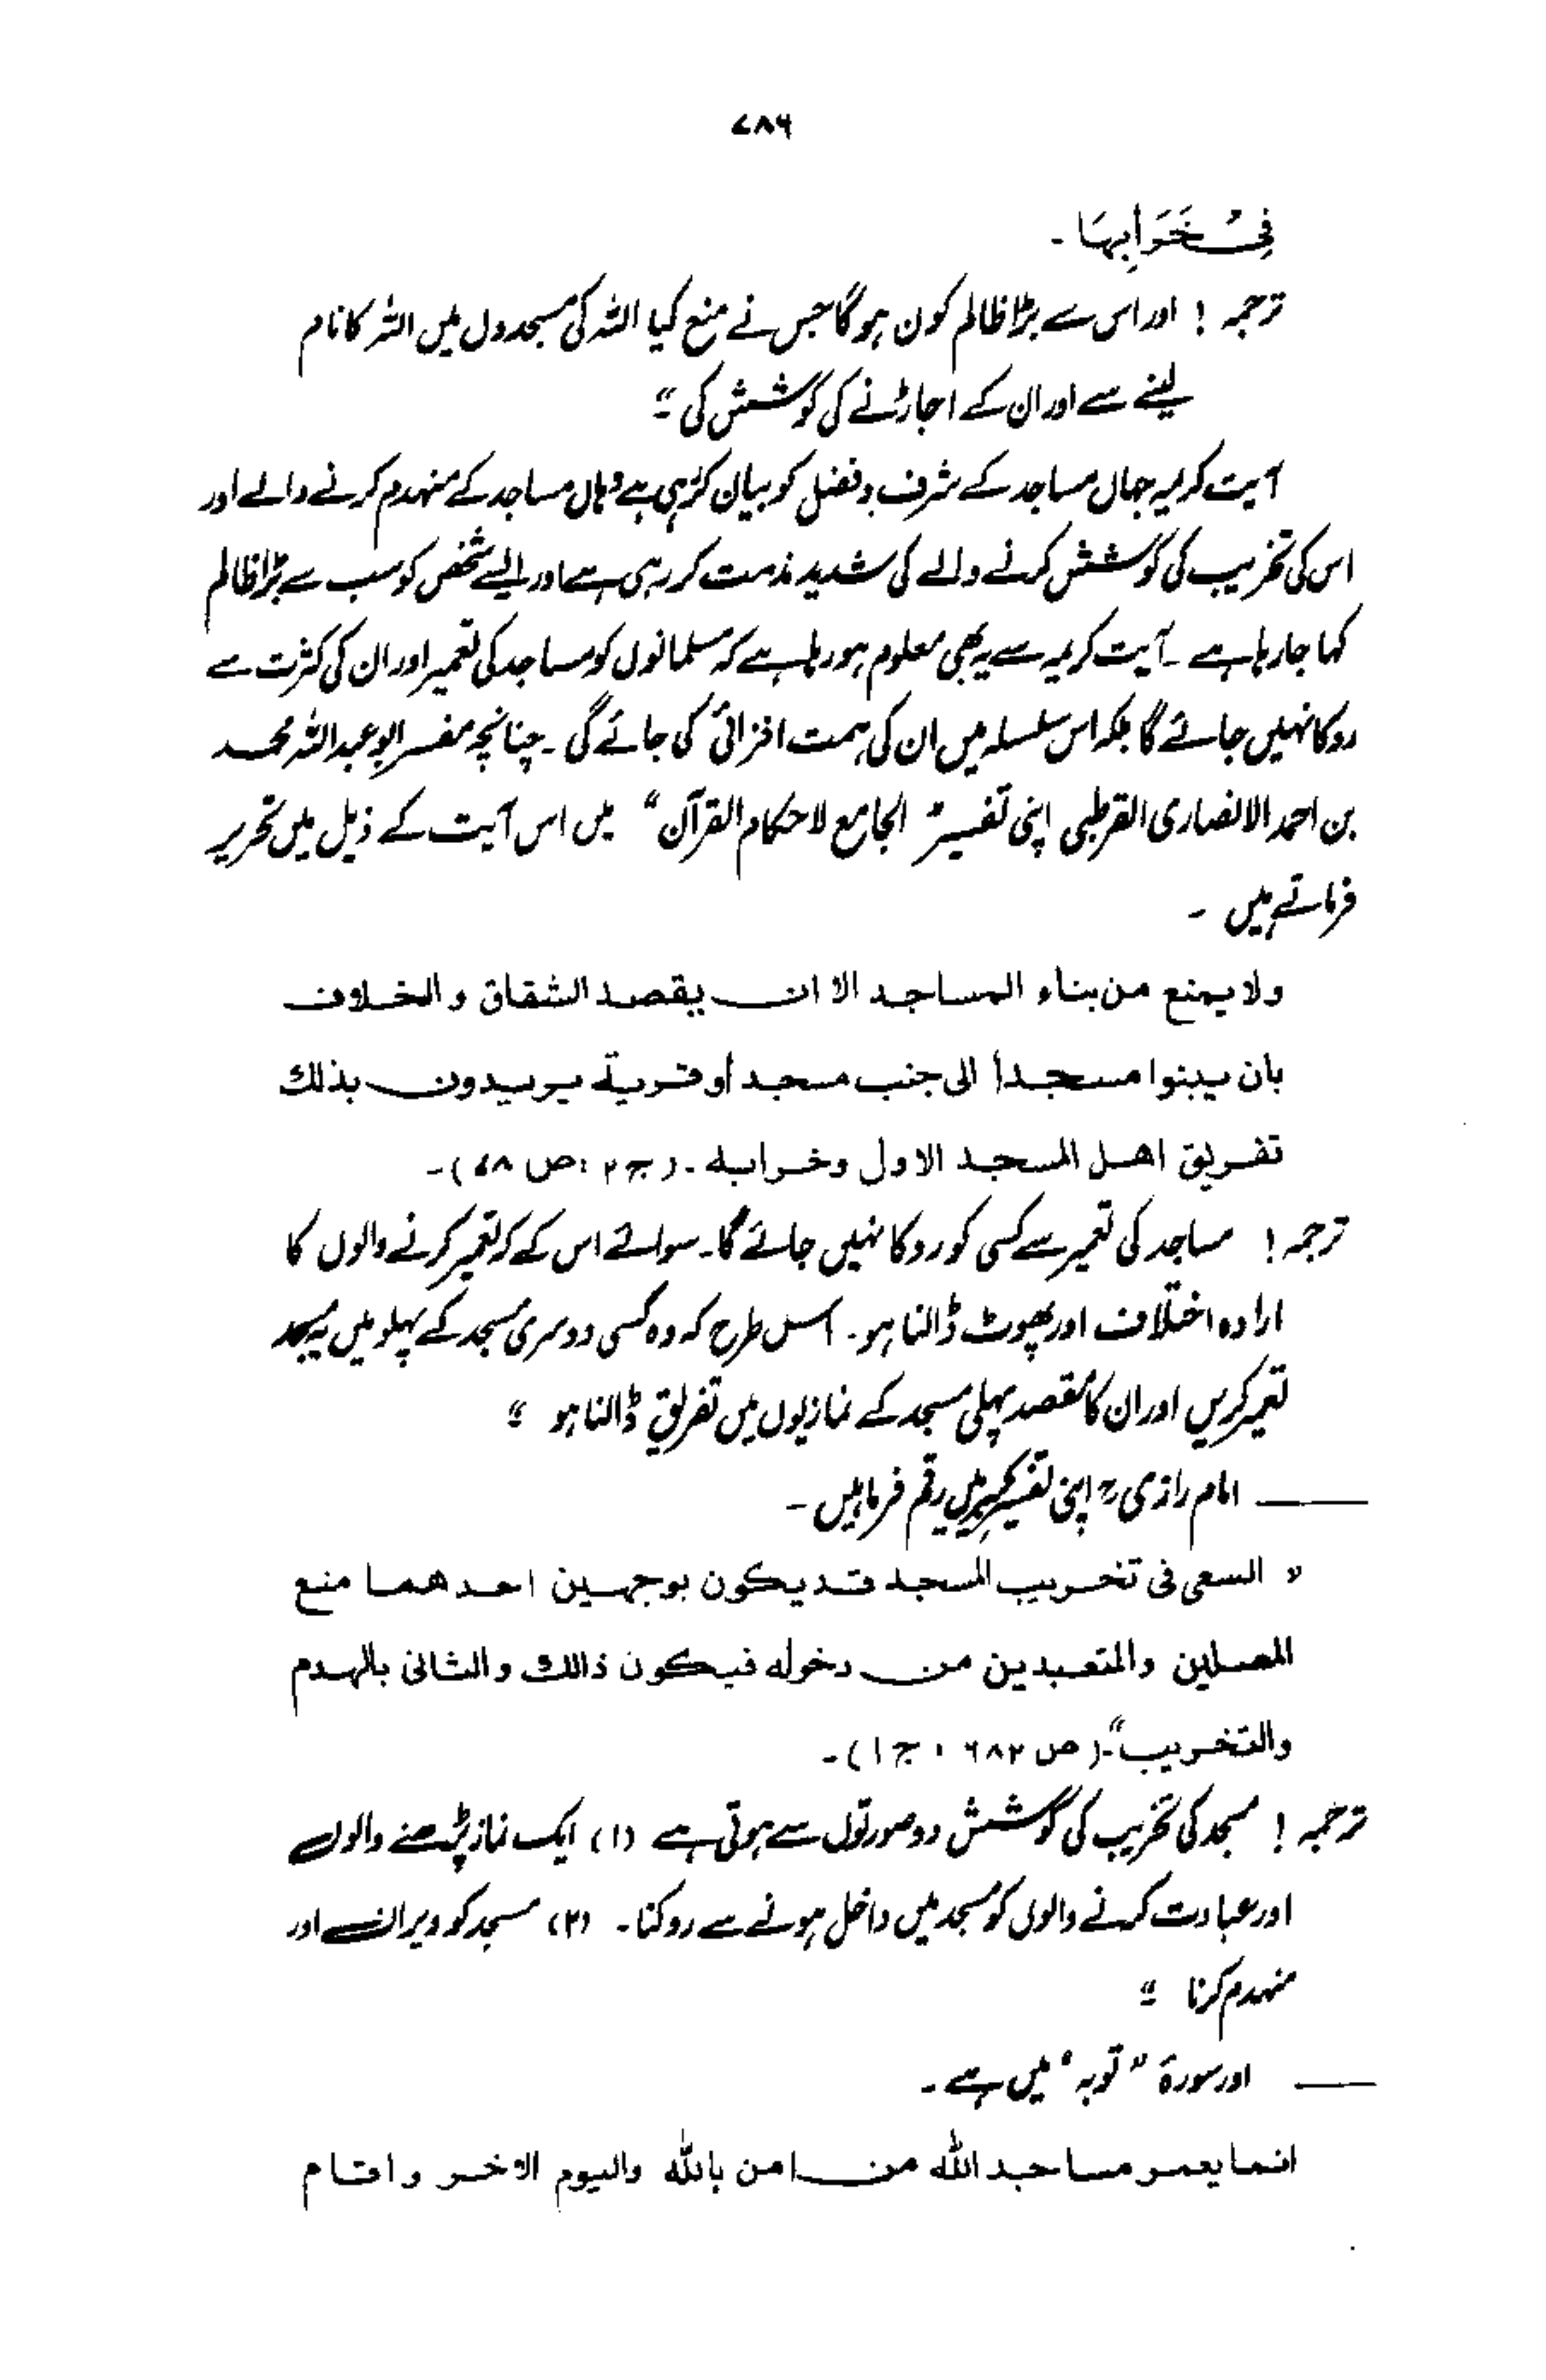 ۷۸۶
فِیْ خَرَابِهَا ۔
ترجمہ ! اور اس سے بڑا ظالم کون ہوگا جس نے منع کیا اللہ کی مسجدوں میں اللہ کا نام
لینے سے اور ان کے اجاڑنے کی کوشش کی ۔"
آیت کریمہ جہاں مساجد کے شرف و فضل کو بیان کر رہی ہے وہاں مساجد کے منہدم کرنے والے اور
اس کی تخریب کی کوشش کرنے والے کی شدید مذمت کر رہی ہے اور ایسے شخص کو سب سے بڑا ظالم
کہا جا رہا ہے ۔ آیت کریمہ سے یہ بھی معلوم ہو رہا ہے کہ مسلمانوں کو مساجد کی تعمیر اور ان کی کثرت سے
روکا نہیں جائے گا بلکہ اس سلسلہ میں ان کی ہمت افزائی کی جائے گی ۔ چنانچہ مفسر ابو عبداللہ محمد
بن احمد الانصاری القرطبی اپنی تفسیر " الجامع لاحکام القرآن " میں اس آیت کے ذیل میں تحریر
فرماتے ہیں ۔
ولا یمنع من بناء المساجد الا ان یقصد الشقاق والخلاف
بان یبنوا مسجداً الی جنب مسجد أو قریة یریدون بذلك
تفریق اهل المسجد الاول وخرابه ۔ (ج ۲ ، ص ۷۸) ۔
ترجمہ ! مساجد کی تعمیر سے کسی کو روکا نہیں جائے گا ۔ سوائے اس کے کہ تعمیر کرنے والوں کا
ارادہ اختلاف اور پھوٹ ڈالنا ہو ۔ اس طرح کہ وہ کسی دوسری مسجد کے پہلو میں یہ مسجد
تعمیر کریں اور ان کا مقصد پہلی مسجد کے نمازیوں میں تفریق ڈالنا ہو ۔"
—— امام رازی ؒ اپنی تفسیر کبیر میں رقم فرما ہیں ۔
" السعی فی تخریب المسجد قد یکون بوجهین احدهما منع
المصلین والمتعبدین من دخوله فیکون ذالك والثانی بالهدم
والتخریب " ۔ (ص ۶۸۲ ، ج ۱) ۔
ترجمہ ! مسجد کی تخریب کی کوشش دو صورتوں سے ہوتی ہے (۱) ایک نماز پڑھنے والوں
اور عبادت کرنے والوں کو مسجد میں داخل ہونے سے روکنا ۔ (۲) مسجد کو ویران اور
منہدم کرنا ۔"
—— اور سورۃ " توبہ " میں ہے ۔
انما یعمر مساجد الله من امن بالله والیوم الاخر واقام